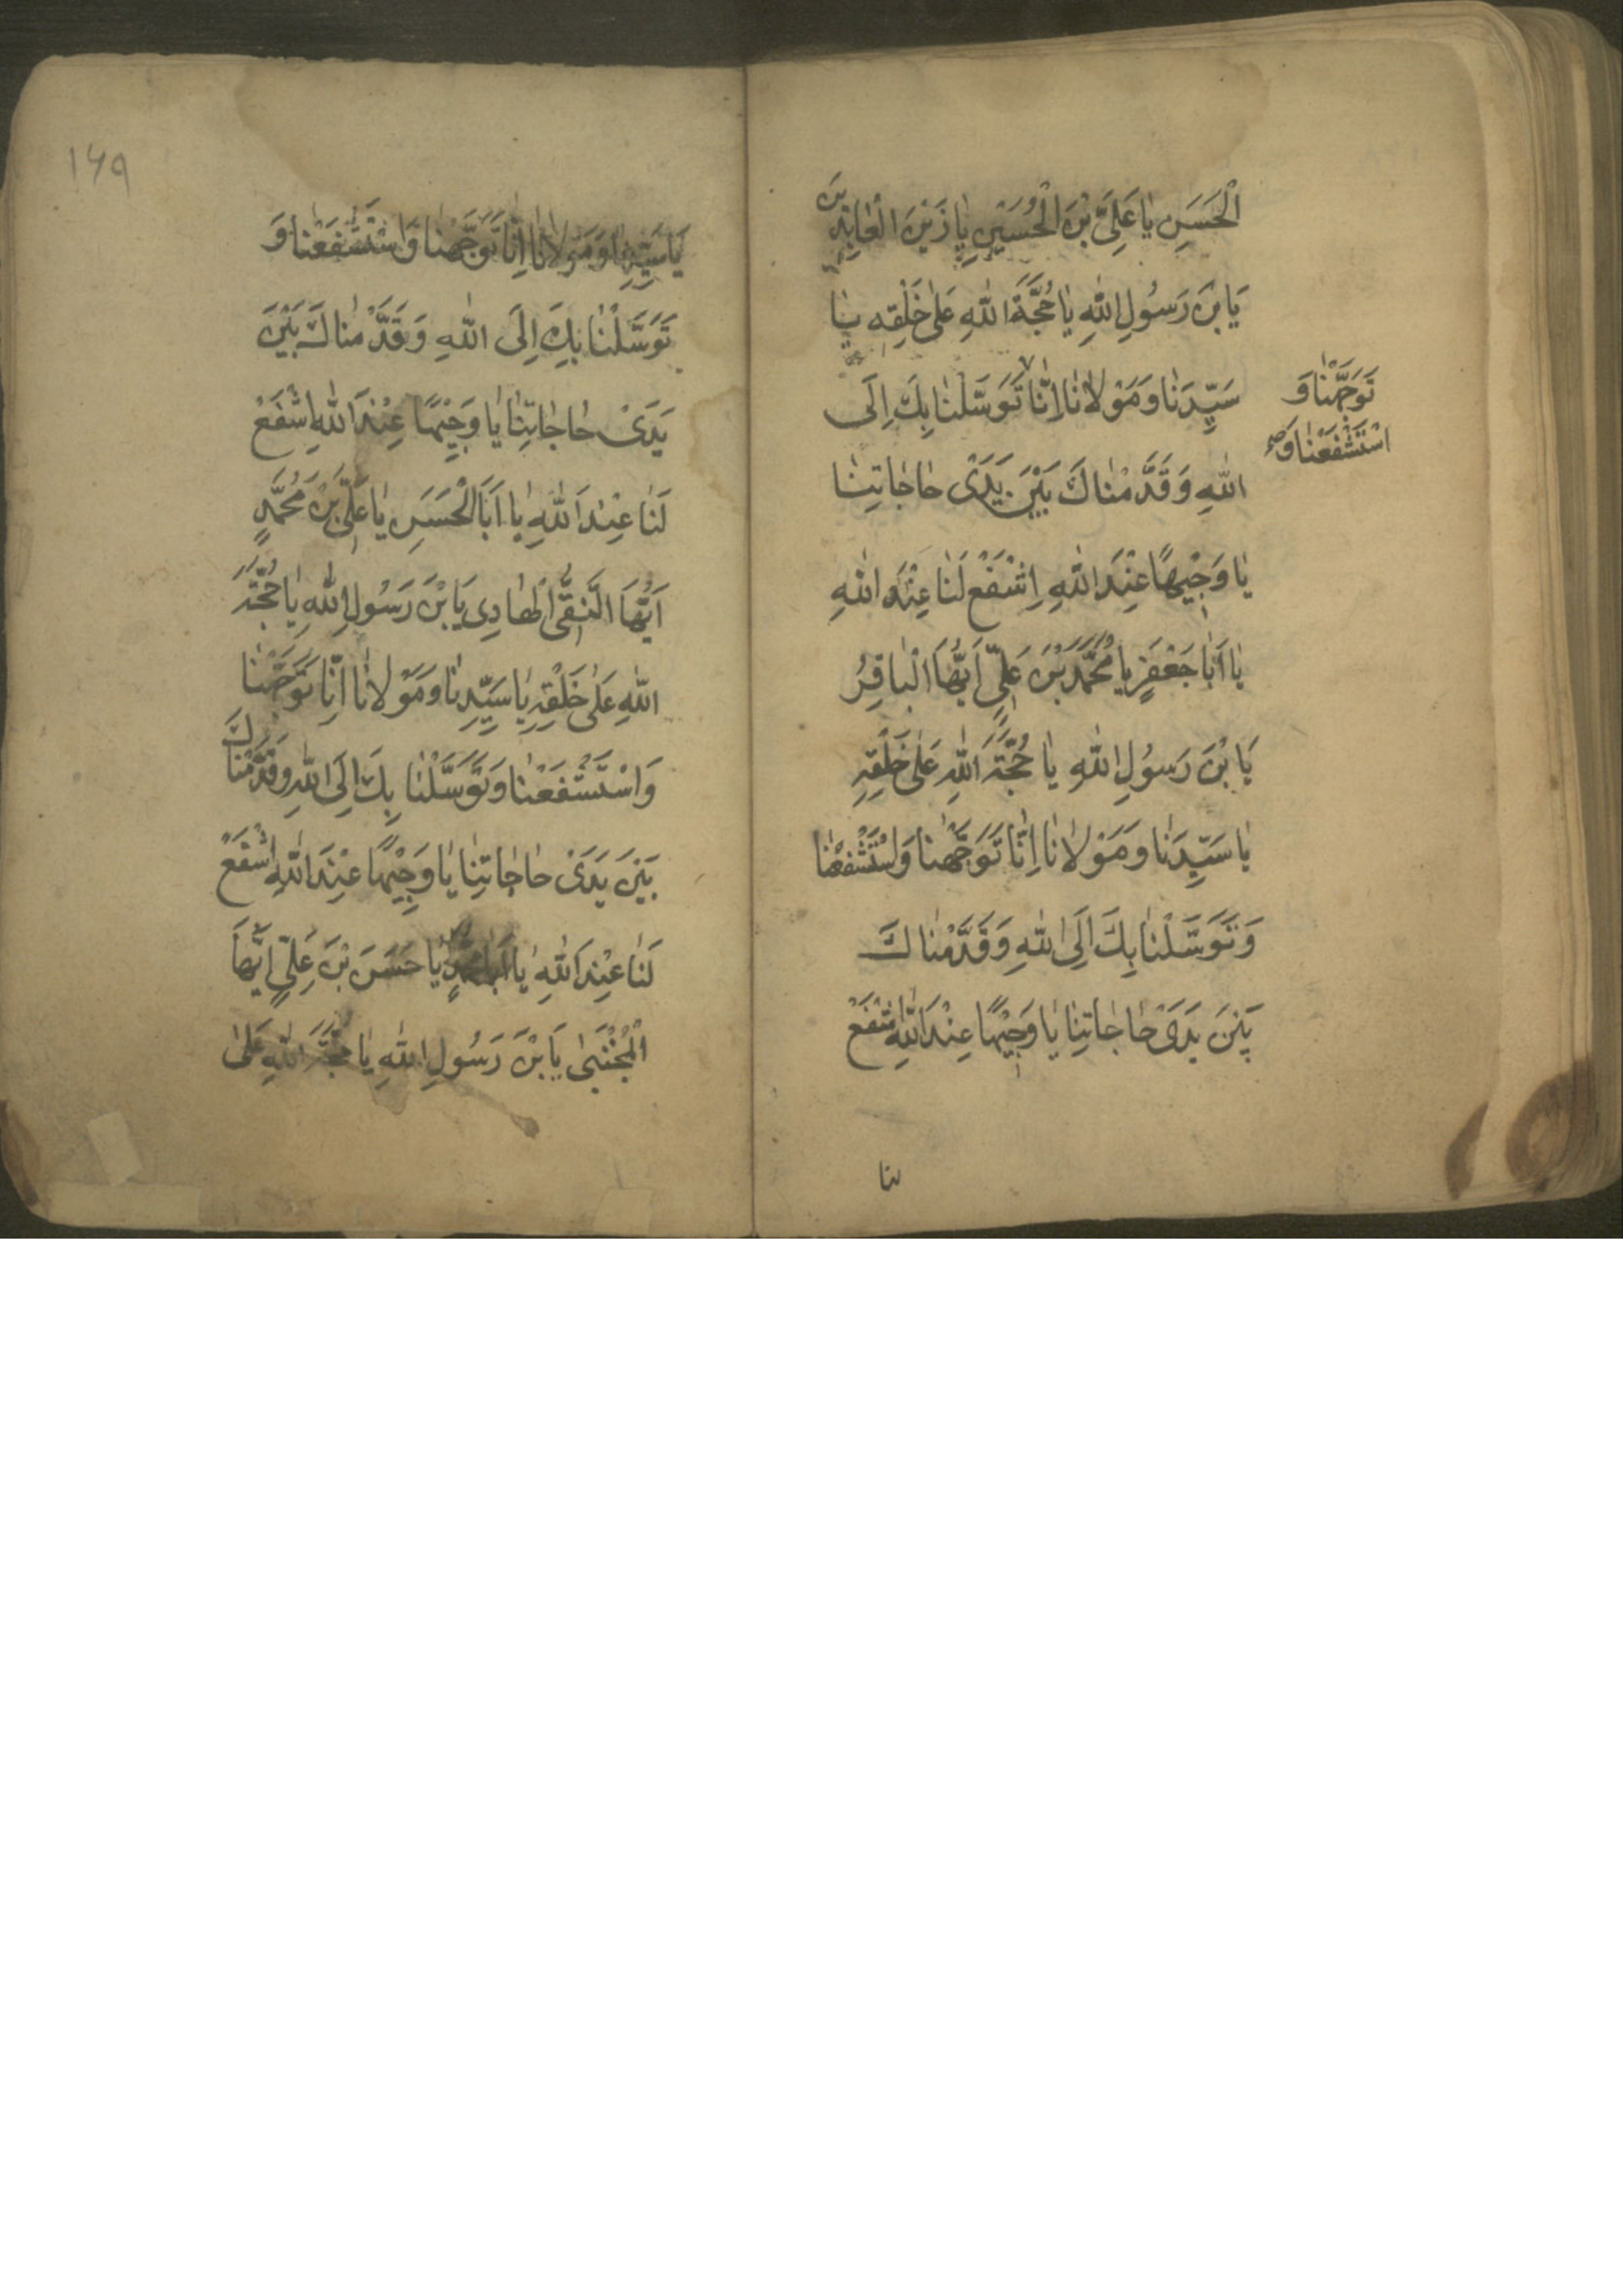 الْحَسَنِ يا عَلِيَّ بْنَ الْحُسَيْنِ يا زَيْنَ الْعابِدِينَ
يَا بْنَ رَسُولِ اللهِ يا حُجَّةَ اللهِ عَلىٰ خَلْقِهِ يا
سَيِّدَنا وَمَوْلانا اِنّا تَوَسَّلْنا بِكَ اِلَى
تَوَجَّهْنا وَ
اسْتَشْفَعْنا وَ صح
اللهِ وَقَدَّمْناكَ بَيْنَ يَدَىْ حاجاتِنا
يا وَجِيْهًا عِنْدَ اللهِ اِشْفَعْ لَنا عِنْدَ اللهِ
يا اَبا جَعْفَرٍ يا مُحَمَّدَ بْنَ عَلِيٍّ اَيُّهَا الْباقِرُ
يَا بْنَ رَسُولِ اللهِ يا حُجَّةَ اللهِ عَلىٰ خَلْقِهِ
يا سَيِّدَنا وَمَوْلانا اِنّا تَوَجَّهْنا وَاسْتَشْفَعْنا
وَتَوَسَّلْنا بِكَ اِلَى اللهِ وَقَدَّمْناكَ
بَيْنَ يَدَىْ حاجاتِنا يا وَجِيْهًا عِنْدَ اللهِ اشْفَعْ
لنا
١٤٩
يا سَيِّدَنا وَمَوْلانا اِنّا تَوَجَّهْنا وَاسْتَشْفَعْنا وَ
تَوَسَّلْنا بِكَ اِلَى اللهِ وَقَدَّمْناكَ بَيْنَ
يَدَىْ حاجاتِنا يا وَجِيْهًا عِنْدَ اللهِ اِشْفَعْ
لَنا عِنْدَ اللهِ يا اَبَا الْحَسَنِ يا عَلِيَّ بْنَ مُحَمَّدٍ
اَيُّهَا النَّقِىُّ الْهادِى يَا بْنَ رَسُولِ اللهِ يا حُجَّةَ
اللهِ عَلىٰ خَلْقِهِ يا سَيِّدِنا وَمَوْلانا اِنّا تَوَجَّهْنا
وَاسْتَشْفَعْنا وَتَوَسَّلْنا بِكَ اِلَى اللهِ وَقَدَّمْناكَ
بَيْنَ يَدَىْ حاجاتِنا يا وَجِيْهًا عِنْدَ اللهِ اشْفَعْ
لَنا عِنْدَ اللهِ يا اَبا مُحَمَّدٍ يا حَسَنَ بْنَ عَلِيٍّ اَيُّهَا
الْمُجْتَبىٰ يَا بْنَ رَسُولِ اللهِ يا حُجَّةَ اللهِ عَلىٰ